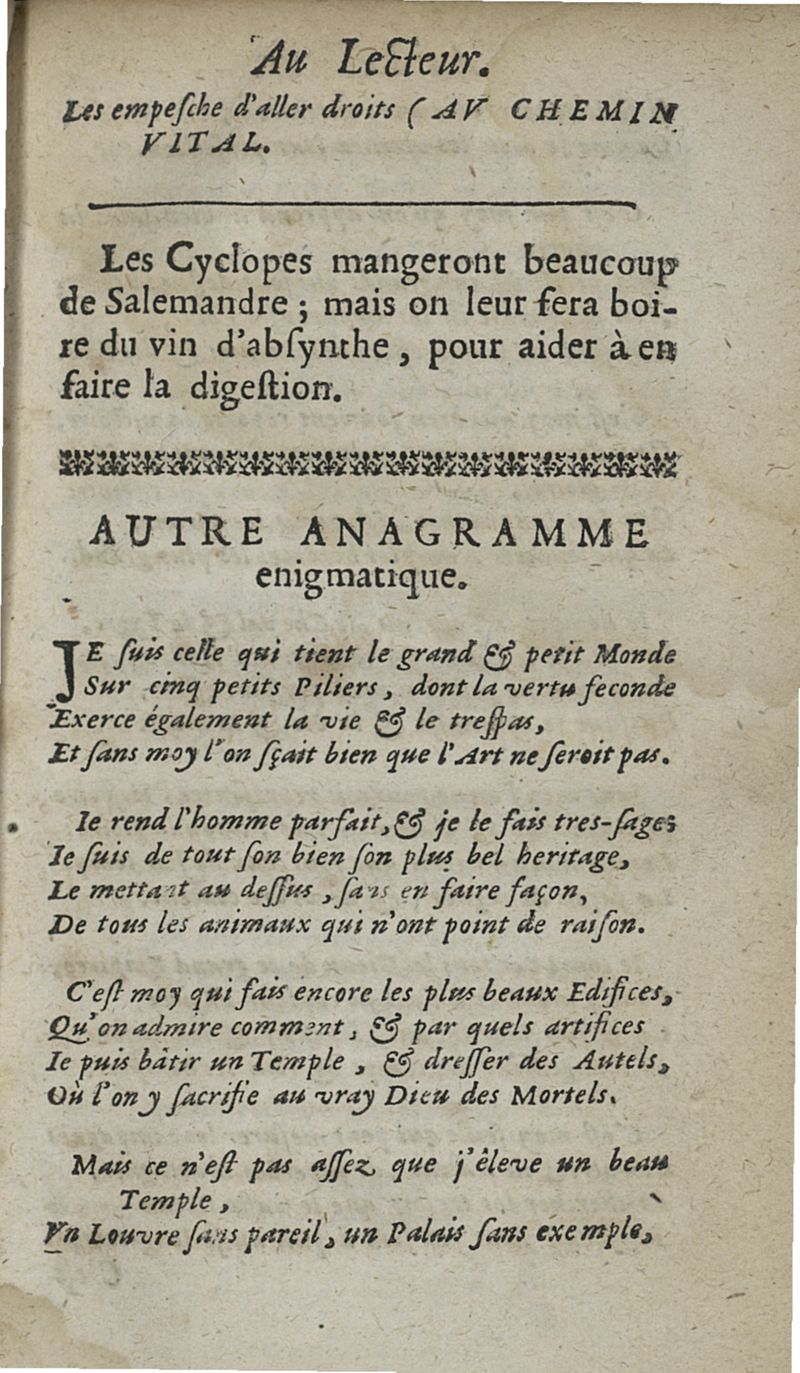 Au Lecteur.
Les empeſche d'aller droits (AV CHEMIN
VITAL.
Les Cyclopes mangeront beaucoup
de Salemandre ; mais on leur fera boi-
re du vin d'abſynthe , pour aider à en
faire la digeſtion.
AUTRE ANAGRAMME
enigmatique.
JE ſuis celle qui tient le grand & petit Monde
Sur cinq petits Piliers, dont la vertu feconde
Exerce également la vie & le treſpas,
Et ſans moy l'on ſçait bien que l'Art ne ſeroit pas.
Ie rend l'homme parfait, & je le fais tres-ſage;
Ie ſuis de tout ſon bien ſon plus bel heritage,
Le mettant au deſſus , ſans en faire façon,
De tous les animaux qui n'ont point de raiſon.
C'eſt moy qui fais encore les plus beaux Edifices,
Qu'on admire comment, & par quels artifices
Ie puis bâtir un Temple , & dreſſer des Autels,
Où l'on y ſacrifie au vray Dieu des Mortels.
Mais ce n'eſt pas aſſez que j'éleve un beau
Temple ,
Vn Louvre ſans pareil, un Palais ſans exemple,